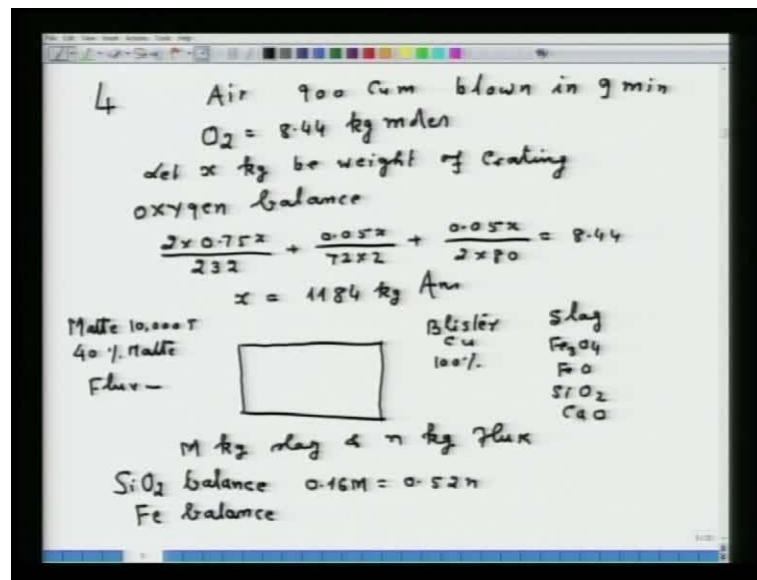 4 Air 900 Cum blown in 9 min
O2 = 8.44 kg moles
Let x kg be weight of Coating
Oxygen balance
2x0.75x/232 + 0.05x/72x2 + 0.05x/2x80 = 8.44
x = 1184 kg Ans
Matte 10,000 T
40 % Matte
Flux -
Blister
Cu
100%.
Slag
Fe3O4
FeO
SiO2
CaO
M kg slag & n kg Flux
SiO2 balance 0.16M = 0.52n
Fe balance